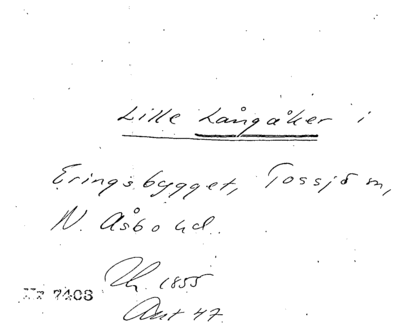 Lille Långåker i
Eringsbygget, Tossjö m,
N. Åsbo hd.
1855
7408
Ant 47